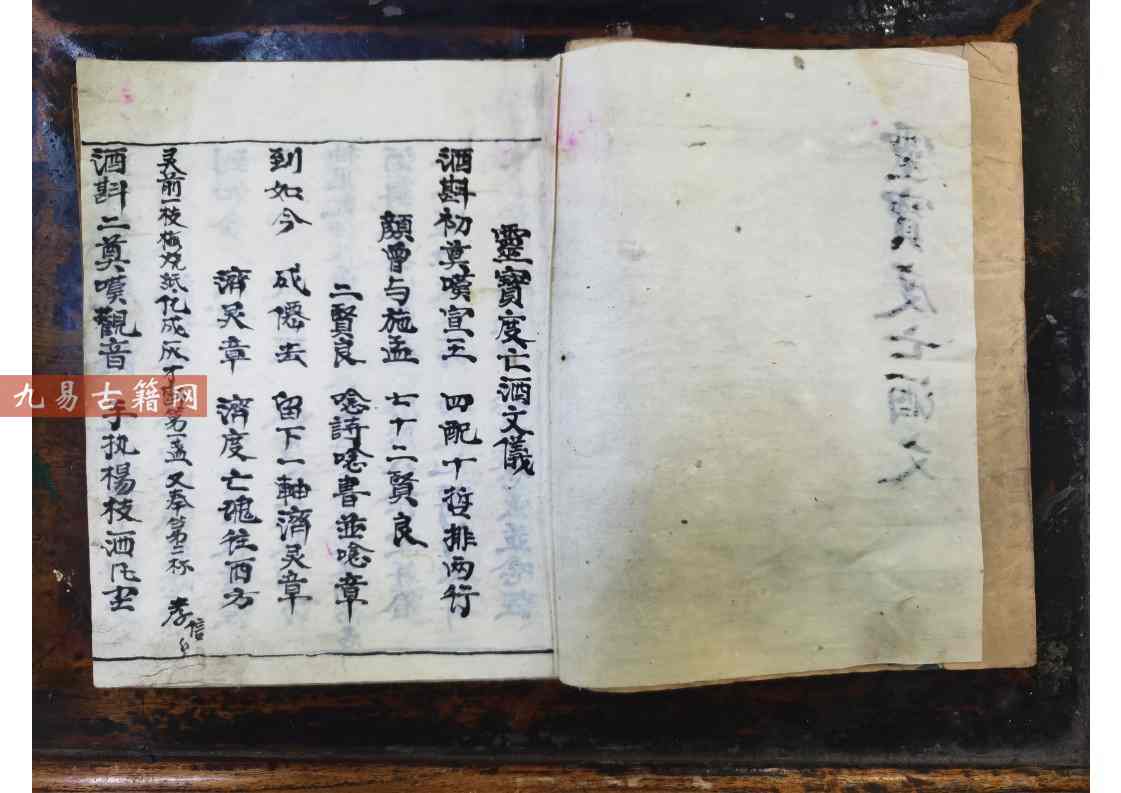 靈寳度亡酒文
靈寳度亡酒文儀
酒斟初奠嘆宣王 四配十哲排両行
顏曾与施孟 七十二賢良
二賢良 唸詩唸書並唸章
到如今 成僊去 留下一軸濟灵章
濟灵章 濟度亡魂往西方
灵前一枝梅 烧紙化成灰 才 第一盏 又奉第二杯 孝信
酒斟二奠嘆觀音 手执楊枝洒凡尘
九易古籍网